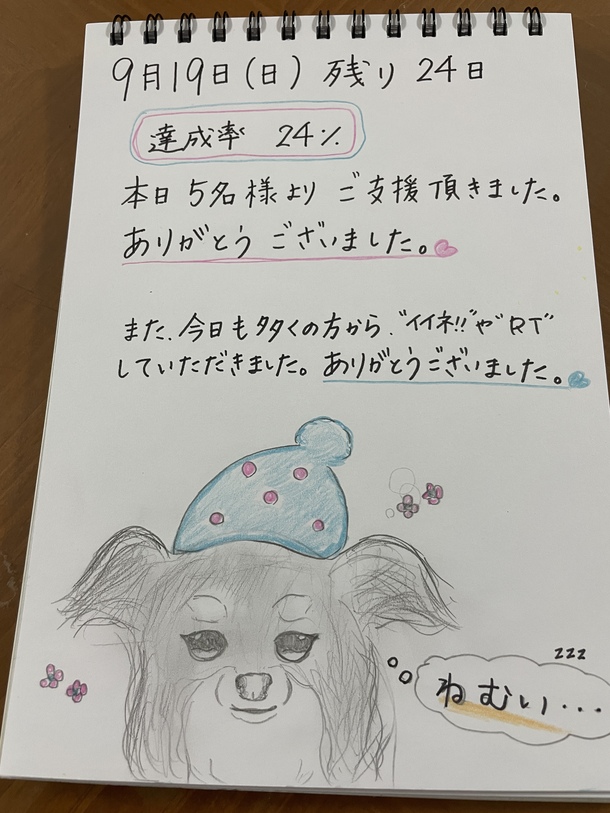 9月19日(日) 残り 24日
達成率 24%
本日 5名様より ご支援頂きました。
ありがとう ございました。
また、今日も多くの方から、"イイネ!!"や"RT"
していただきました。ありがとうございました。
zzz
ねむい...